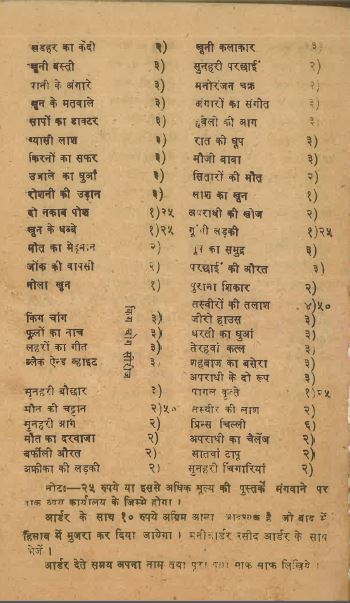 खडहर का कैदी ३)
खूनी बस्ती ३)
पानी के अंगारे ३)
खून के मतवाले ३)
सापों का डाक्टर ३)
प्यासी लाश ३)
किरनों का सफर ३)
उजाले का धुआँ ३)
रोशनी की उड़ान ३)
दो नकाब पोश १)२५
खून के धब्बे १)२५
मौत का मेहमान २)
जोंक की वापसी २)
नीला खून १)
किंग चांग ३)
फूलों का नाच ३)
लहरों का गीत ३)
ब्लैक ऐन्ड व्हाइट ३)
किंग चांग सीरीज
सुनहरी बौछार ३)
मौत की चट्टान २)५०
सुनहरी आग २)
मौत का दरवाजा २)
बर्फीली औरत २)
अफ्रीका की लड़की २)
खूनी कलाकार ३)
सुनहरी परछाईं २)
मनोरंजन चक्र २)
अंगारों का संगीत ३)
हवेली की आग ३)
रात की धूप ३)
मौजी बाबा ३)
सितारों की मौत २)
लाश का खून १)
अपराधी की खोज २)
गूंगी लड़की १)२५
का समुद्र ३)
परछाईं की औरत ३)
पुराना शिकार २)
तस्वीरों की तलाश ४)५०
जीरो हाउस ३)
धरती का धुआं ३)
तेरहवां कत्ल ३)
शहबाज का बसेरा ३)
अपराधी के दो रूप ३)
पागल कुत्ते
तस्वीर की लाश २)
प्रिन्स चिल्ली ६)
अपराधी का चैलेंज २)
सातवां टापू २)
सुनहरी चिंगारियां २)
नोटः—२५ रुपये या इससे अधिक मूल्य की पुस्तकें मंगवाने पर
डाक व्यय कार्यालय के जिम्मे होगा ।
आर्डर के साथ १० रुपये अग्रिम आना आवश्यक है जो बाद में
हिसाब में मुजरा कर दिया जायेगा । मनीआर्डर रसीद आर्डर के साथ
भेजें ।
आर्डर देते समय अपना नाम तथा पूरा पता साफ साफ लिखिये ।